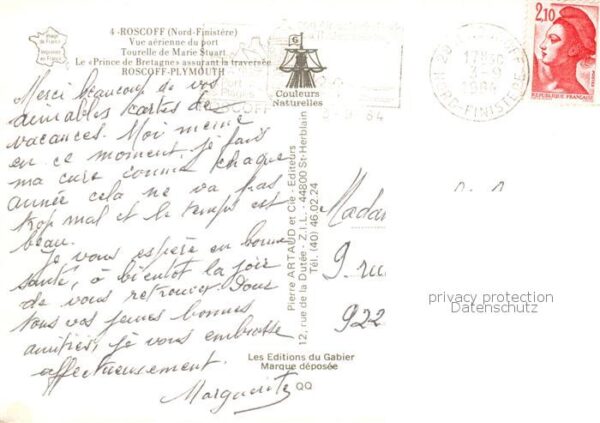 4 -ROSCOFF (Nord-Finistère)
Vue aérienne du port
Tourelle de Marie Stuart
Le «Prince de Bretagne» assurant la traversée
ROSCOFF-PLYMOUTH
Couleurs
Naturelles
2,10
REPUBLIQUE FRANÇAISE
17H30
1984
NORD-FINISTERE
Merci beaucoup de vos
aimables cartes de
vacances. Moi même
en ce moment, je fais
ma cure comme chaque
année cela ne va pas
trop mal et le temps est
beau.
Je vous espère en bonne
santé, à bientôt la joie
de vous retrouver. Vous
tous vos jeunes bonnes
amitiés, je vous embrasse
affectueusement.
Marguerite
Pierre ARTAUD et Cie - Editeurs
12, rue de la Dutée - Z.I.L. - 44800 St-Herblain
Tél. (40) 46.02.24
Madar
9. rue
922
privacy protection
Datenschutz
Les Editions du Gabier
Marque déposée
QQ